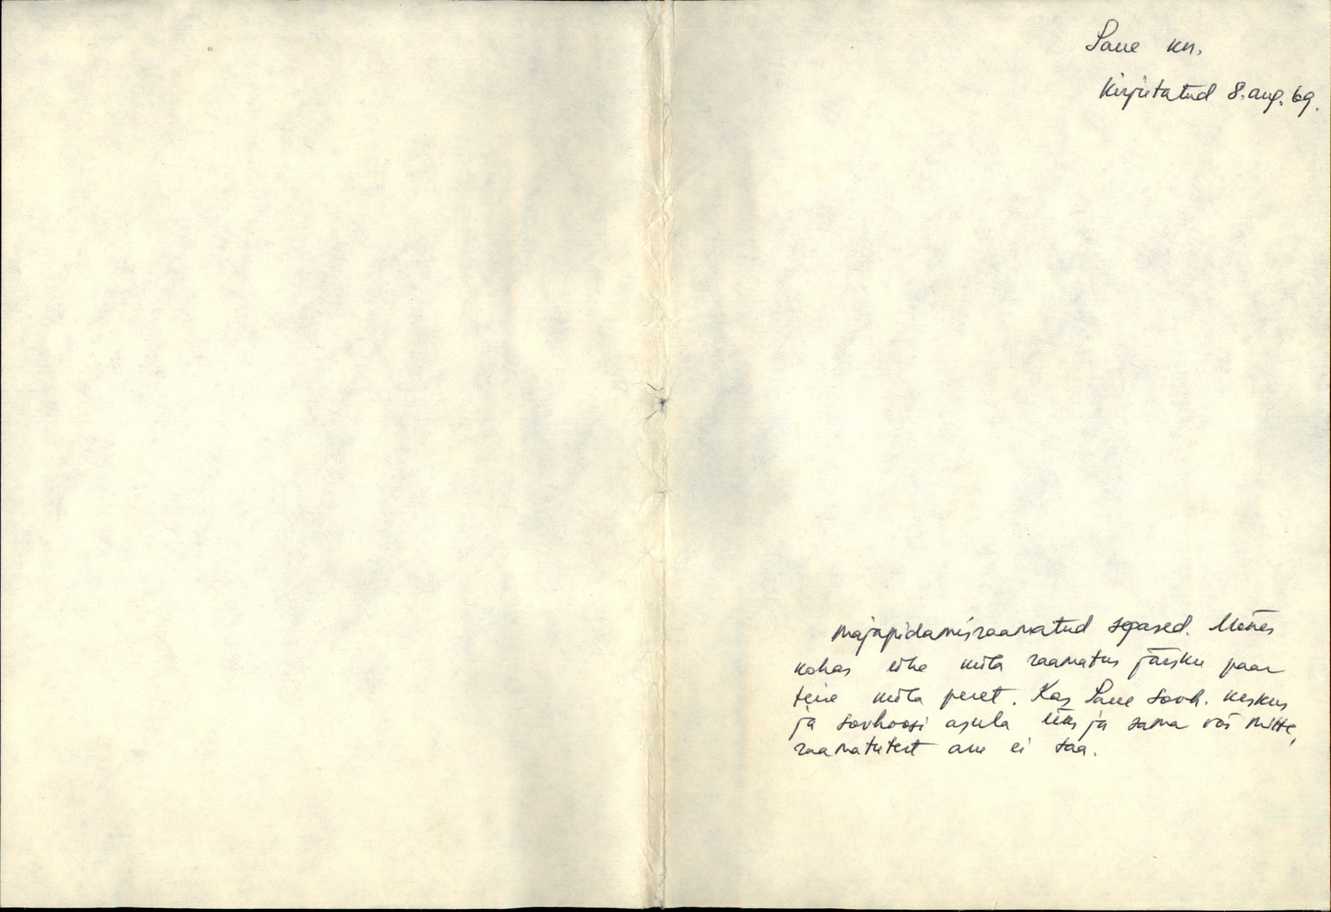 Saue kn.
Kirjutatud 8. aug. 69.
Majapidamisraamatud segased. Mõnes
kohas ühe küla raamatus järsku paar
teise küla peret. Kas Saue sovh. keskus
ja sovhoosi asula üks ja sama või mitte,
raamatutest aru ei saa.